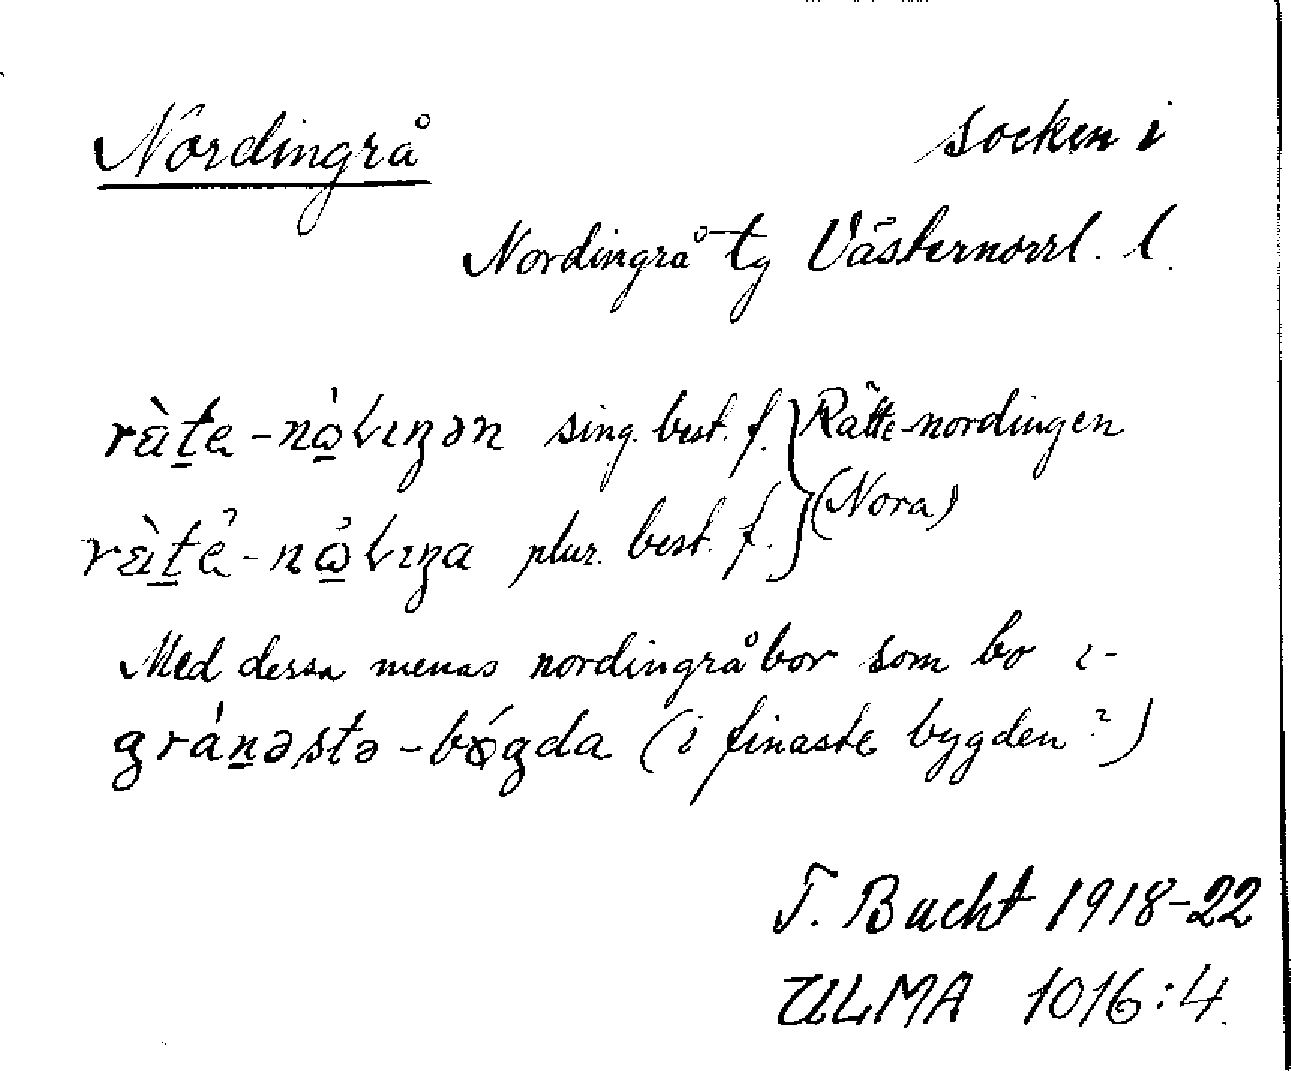 Nordingrå socken i
Nordingrå tg Västernorrl. l.
sing. best. f. } Rätte-nordingen
plur. best. f. } (Nora)
Med dessa menas nordingråbor som bo ɩ-
gránəstə-bógda (i finaste bygden?)
T. Bucht 1918-22
ULMA 1016:4.